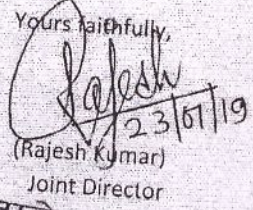 Yours faithfully,
Rajesh
23/07/19
(Rajesh Kumar)
Joint Director